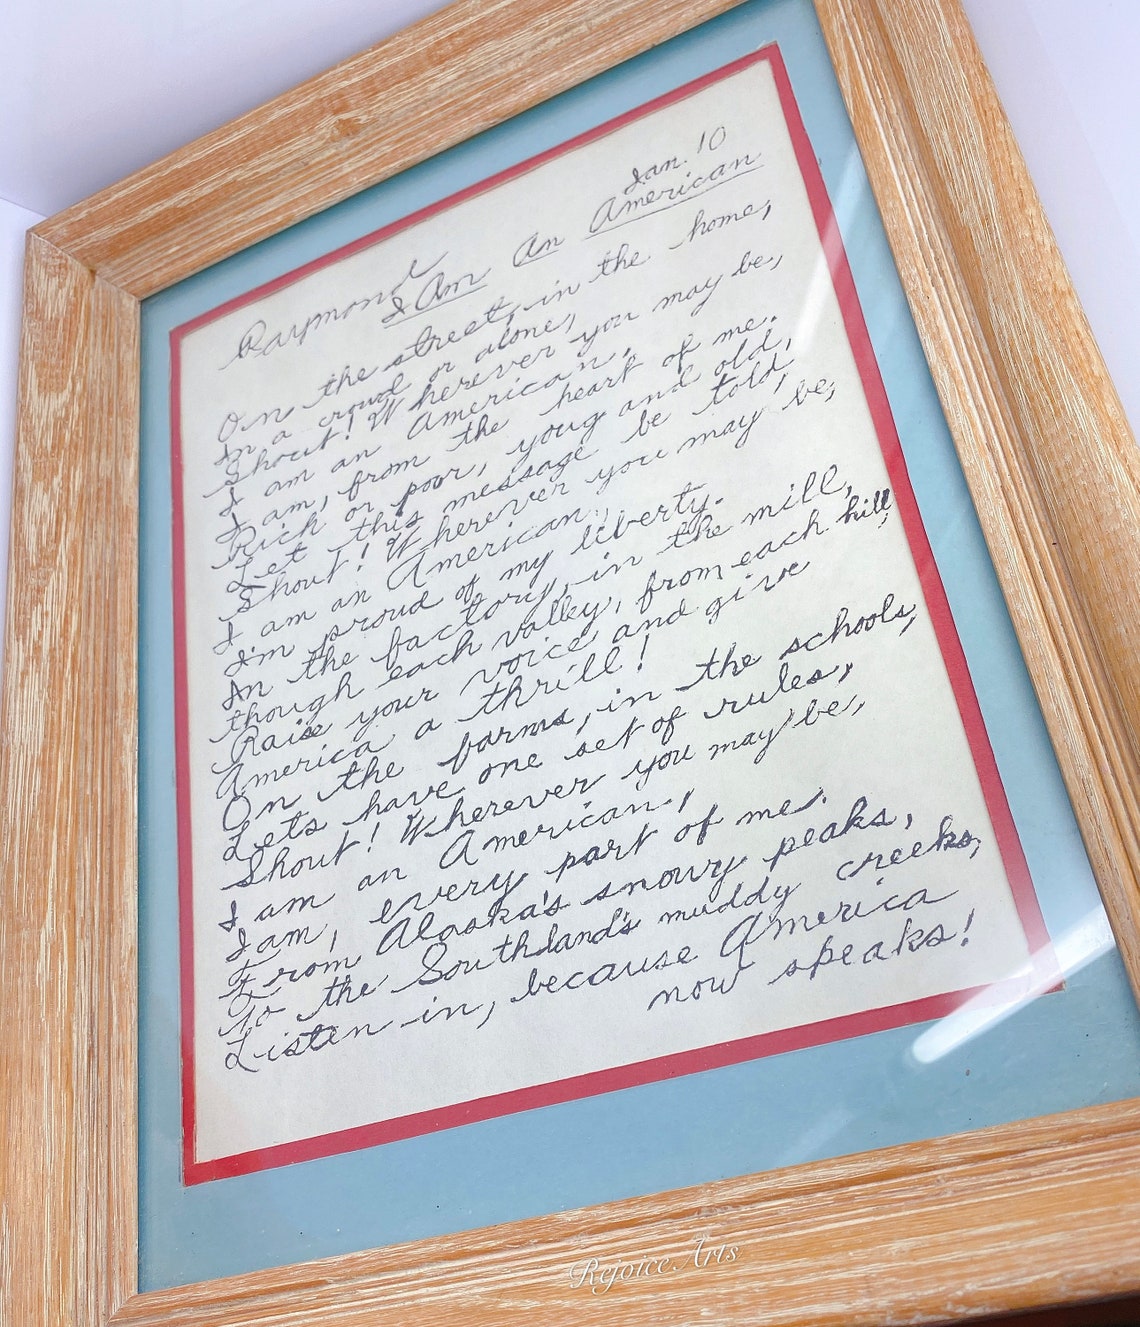 Jan. 10
Raymond
I Am An American
On the street, in the home,
In a crowd or alone,
Shout! Wherever you may be,
I am an American,
I am, from the heart of me.
Rich or poor, youg and old,
Let this message be told,
Shout! Wherever you may be,
I am an American,
I'm proud of my liberty.
In the factory, in the mill,
though each valley, from each hill,
Raise your voice and give
America a thrill!
On the farms, in the schools,
Lets have one set of rules,
Shout! Wherever you may be,
I am an American,
I am, every part of me.
From Alaska's snowy peaks,
To the Southland's muddy creeks,
Listen in, because America
now speaks!
Rejoice Arts